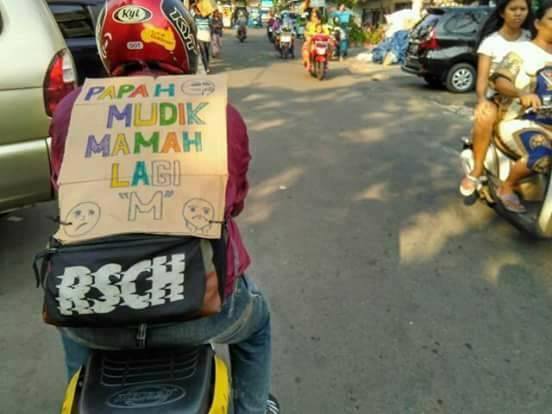 Kyt
KYT
PAPAH
MUDIK
MAMAH
LAGI
"M"
RSCH